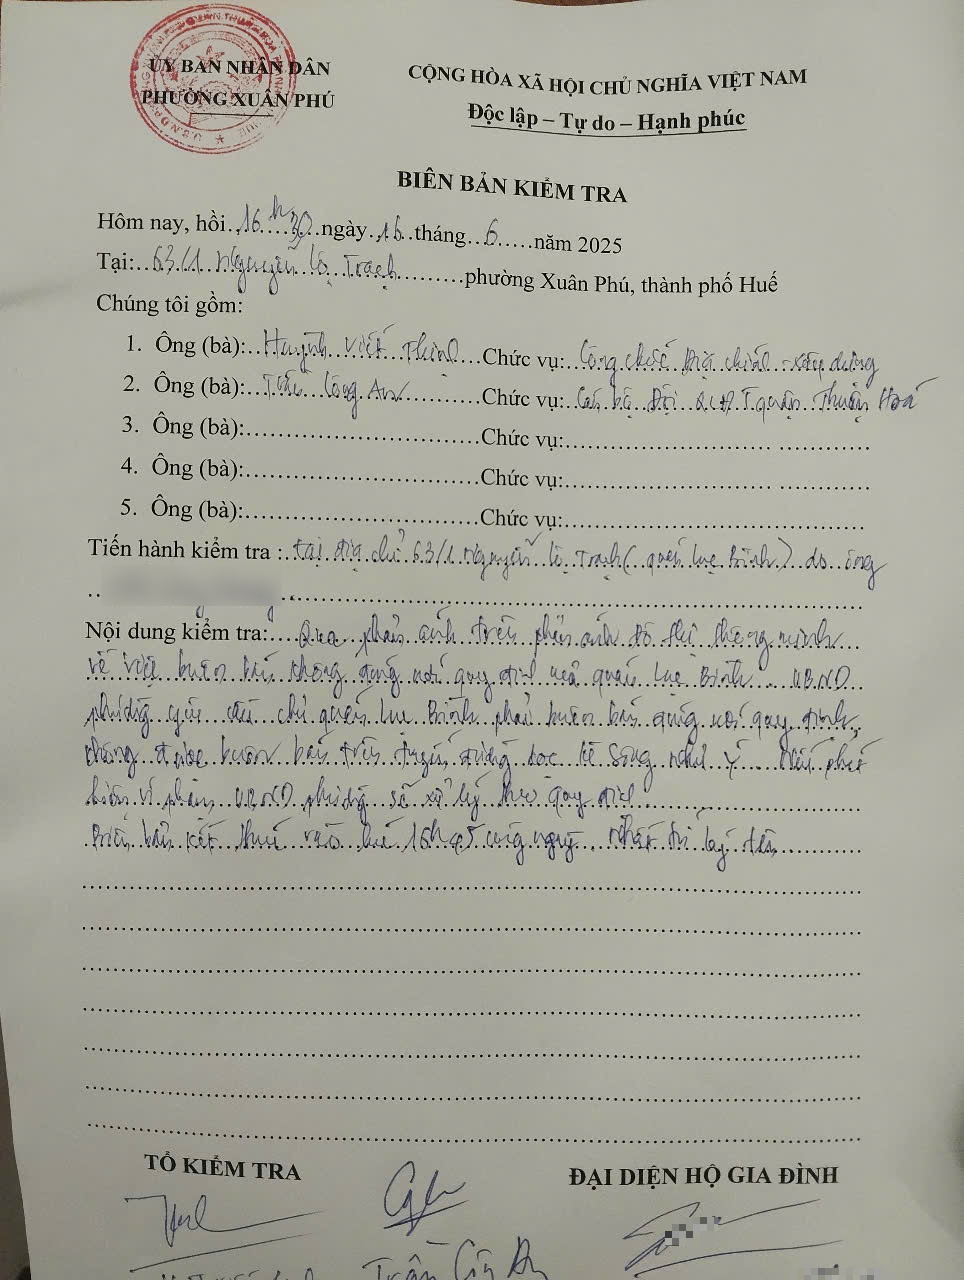 ỦY BAN NHÂN DÂN
PHƯỜNG XUÂN PHÚ
CỘNG HÒA XÃ HỘI CHỦ NGHĨA VIỆT NAM
Độc lập – Tự do – Hạnh phúc
BIÊN BẢN KIỂM TRA
Hôm nay, hồi 16h30 ngày 16 tháng 6 năm 2025
Tại: 63/1 Nguyễn Lộ Trạch phường Xuân Phú, thành phố Huế
Chúng tôi gồm:
1. Ông (bà): Huỳnh Viết Thịnh Chức vụ: Công chức Địa chính - xây dựng
2. Ông (bà): Trần Công An Chức vụ: Cán bộ Đội QLĐT quận Thuận Hoá
3. Ông (bà): Chức vụ:
4. Ông (bà): Chức vụ:
5. Ông (bà): Chức vụ:
Tiến hành kiểm tra : tại địa chỉ 63/1 Nguyễn Lộ Trạch (quán Lục Bình) do ông
Nội dung kiểm tra: Qua phản ánh trên phản ánh đô thị thông minh
về việc buôn bán không đúng nơi quy định của quán Lục Bình. UBND
phường yêu cầu chủ quán Lục Bình phải buôn bán đúng nơi quy định,
không được buôn bán trên tuyến đường dọc kè sông Như Ý. Nếu phát
hiện vi phạm UBND phường sẽ xử lý theo quy định
Biên bản kết thúc vào lúc 16h45 cùng ngày. Nhất trí ký tên
TỔ KIỂM TRA
ĐẠI DIỆN HỘ GIA ĐÌNH
Trần Công An